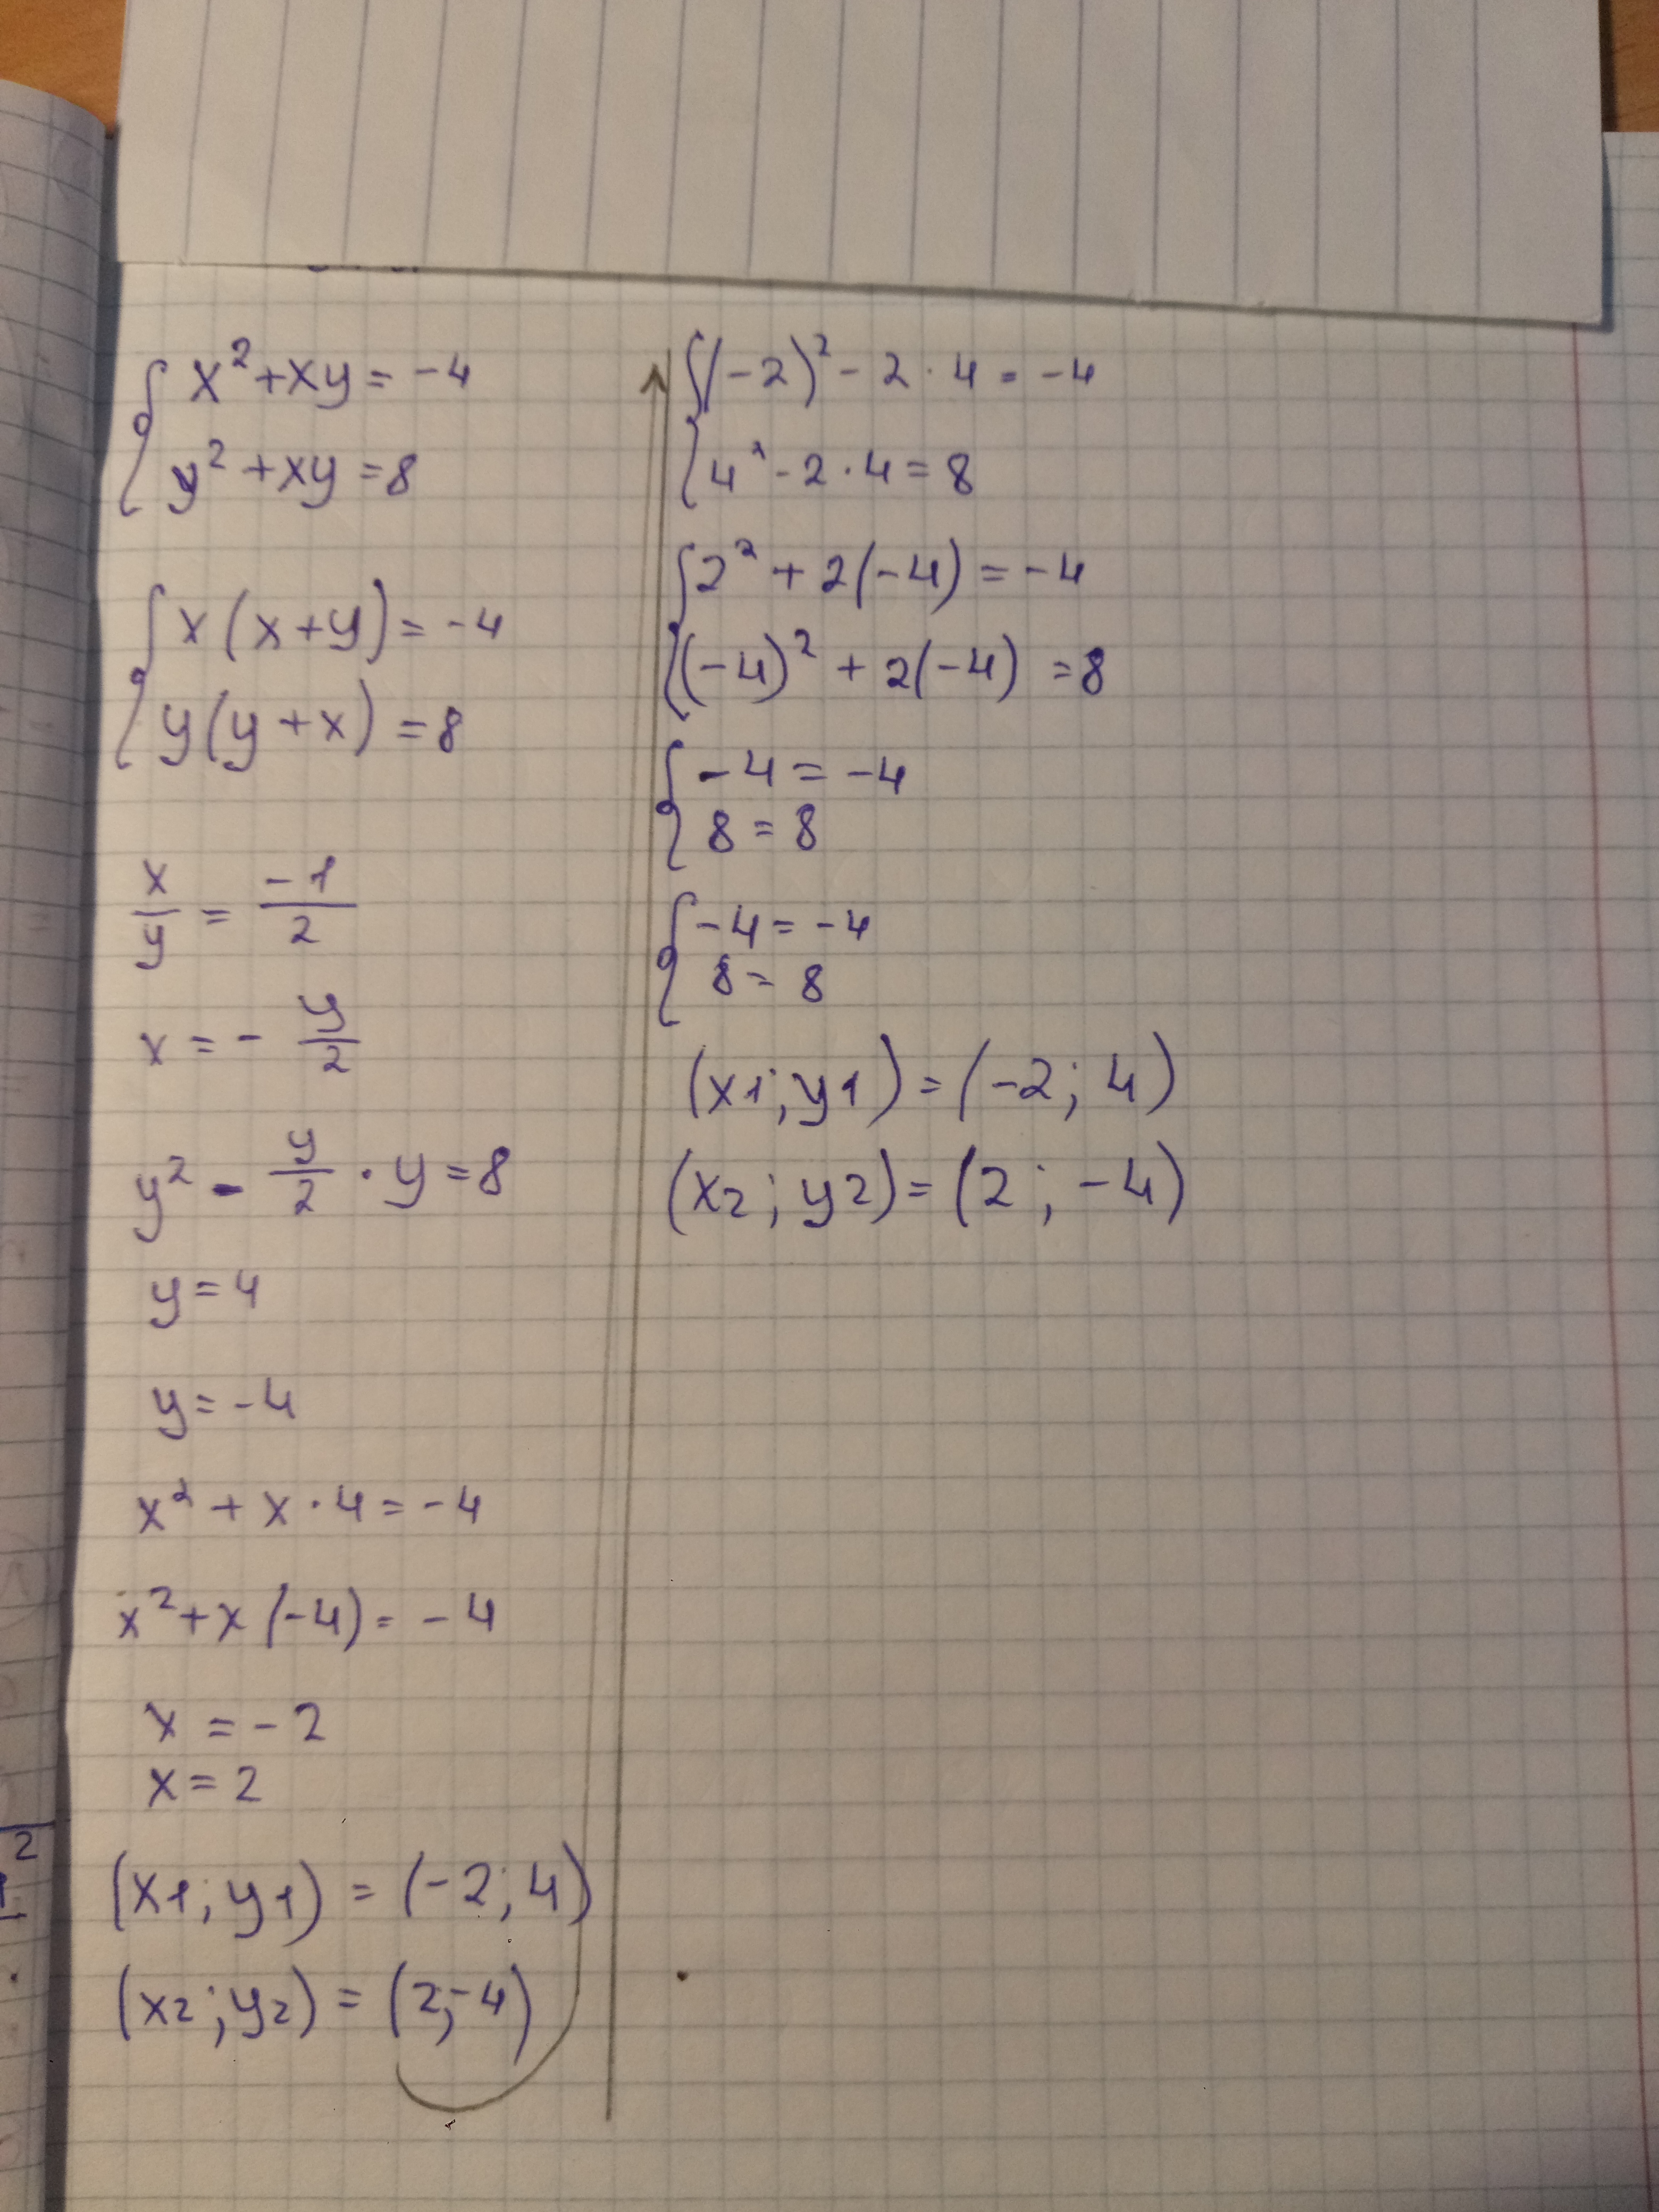 x² + xy = -4
y² + xy = 8
x (x + y) = -4
y (y + x) = 8
x/y = -1/2
x = - y/2
y² - y/2 · y = 8
y = 4
y = -4
x² + x · 4 = -4
x² + x (-4) = -4
x = -2
x = 2
(x1; y1) = (-2; 4)
(x2; y2) = (2; -4)
(-2)² - 2 · 4 = -4
4² - 2 · 4 = 8
2² + 2(-4) = -4
(-4)² + 2(-4) = 8
-4 = -4
8 = 8
-4 = -4
8 = 8
(x1; y1) = (-2; 4)
(x2; y2) = (2; -4)
2